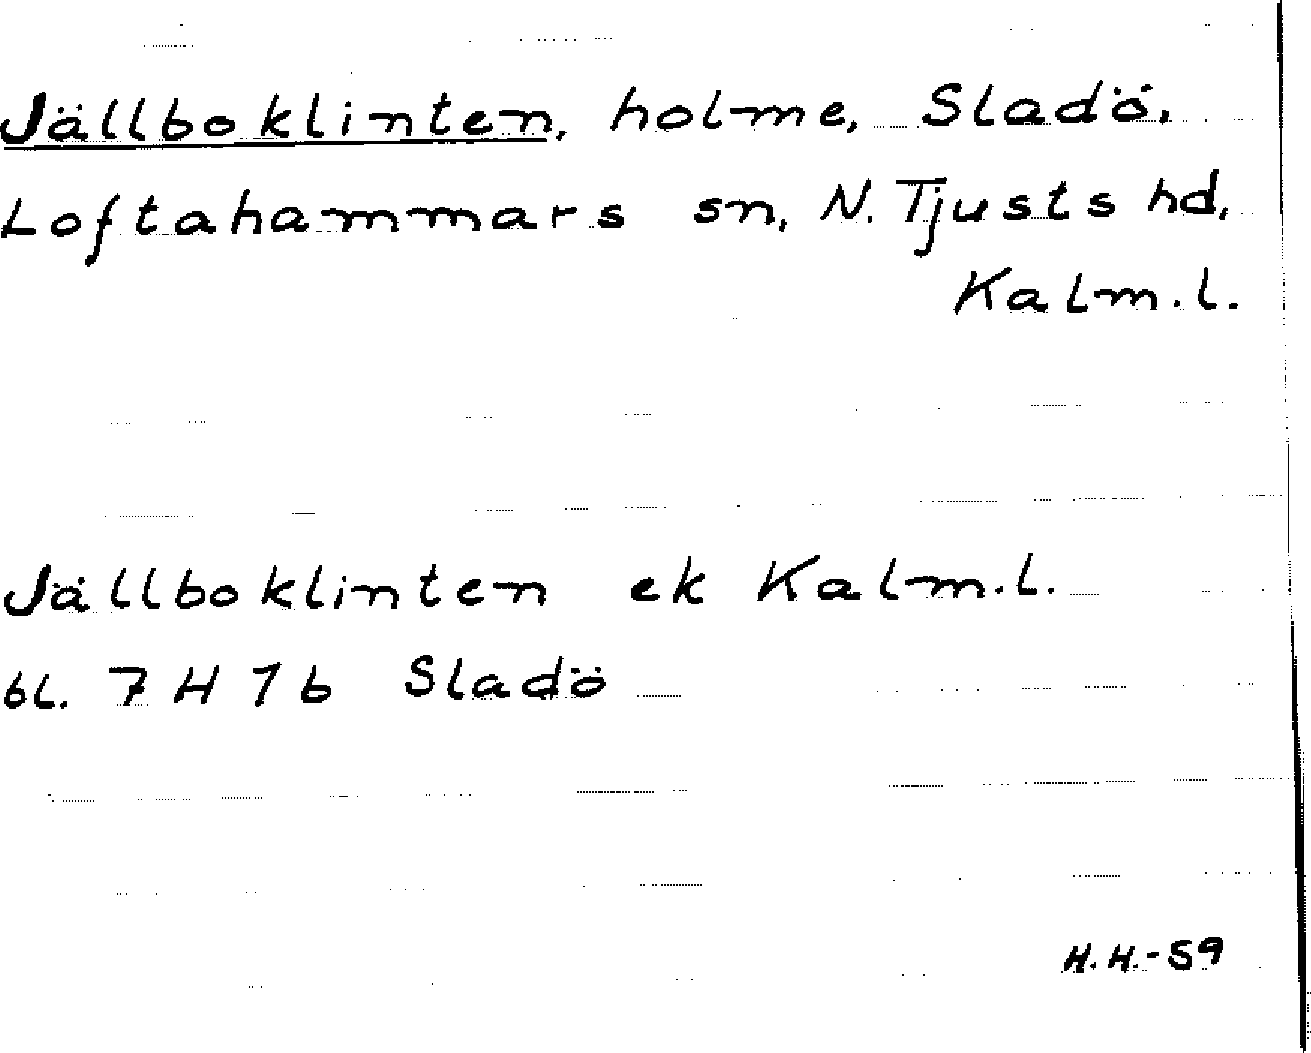 Jällboklinten, holme, Sladö,
Loftahammars sn, N. Tjusts hd,
Kalm.l.
Jällboklinten ek Kalm.l.
bl. 7 H 1 b Sladö
H.H.-59